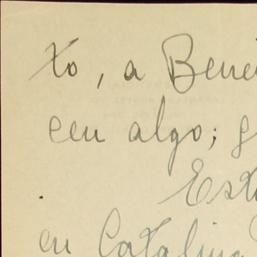 to, a Bene
ceu algo; g
Est
en Catalina